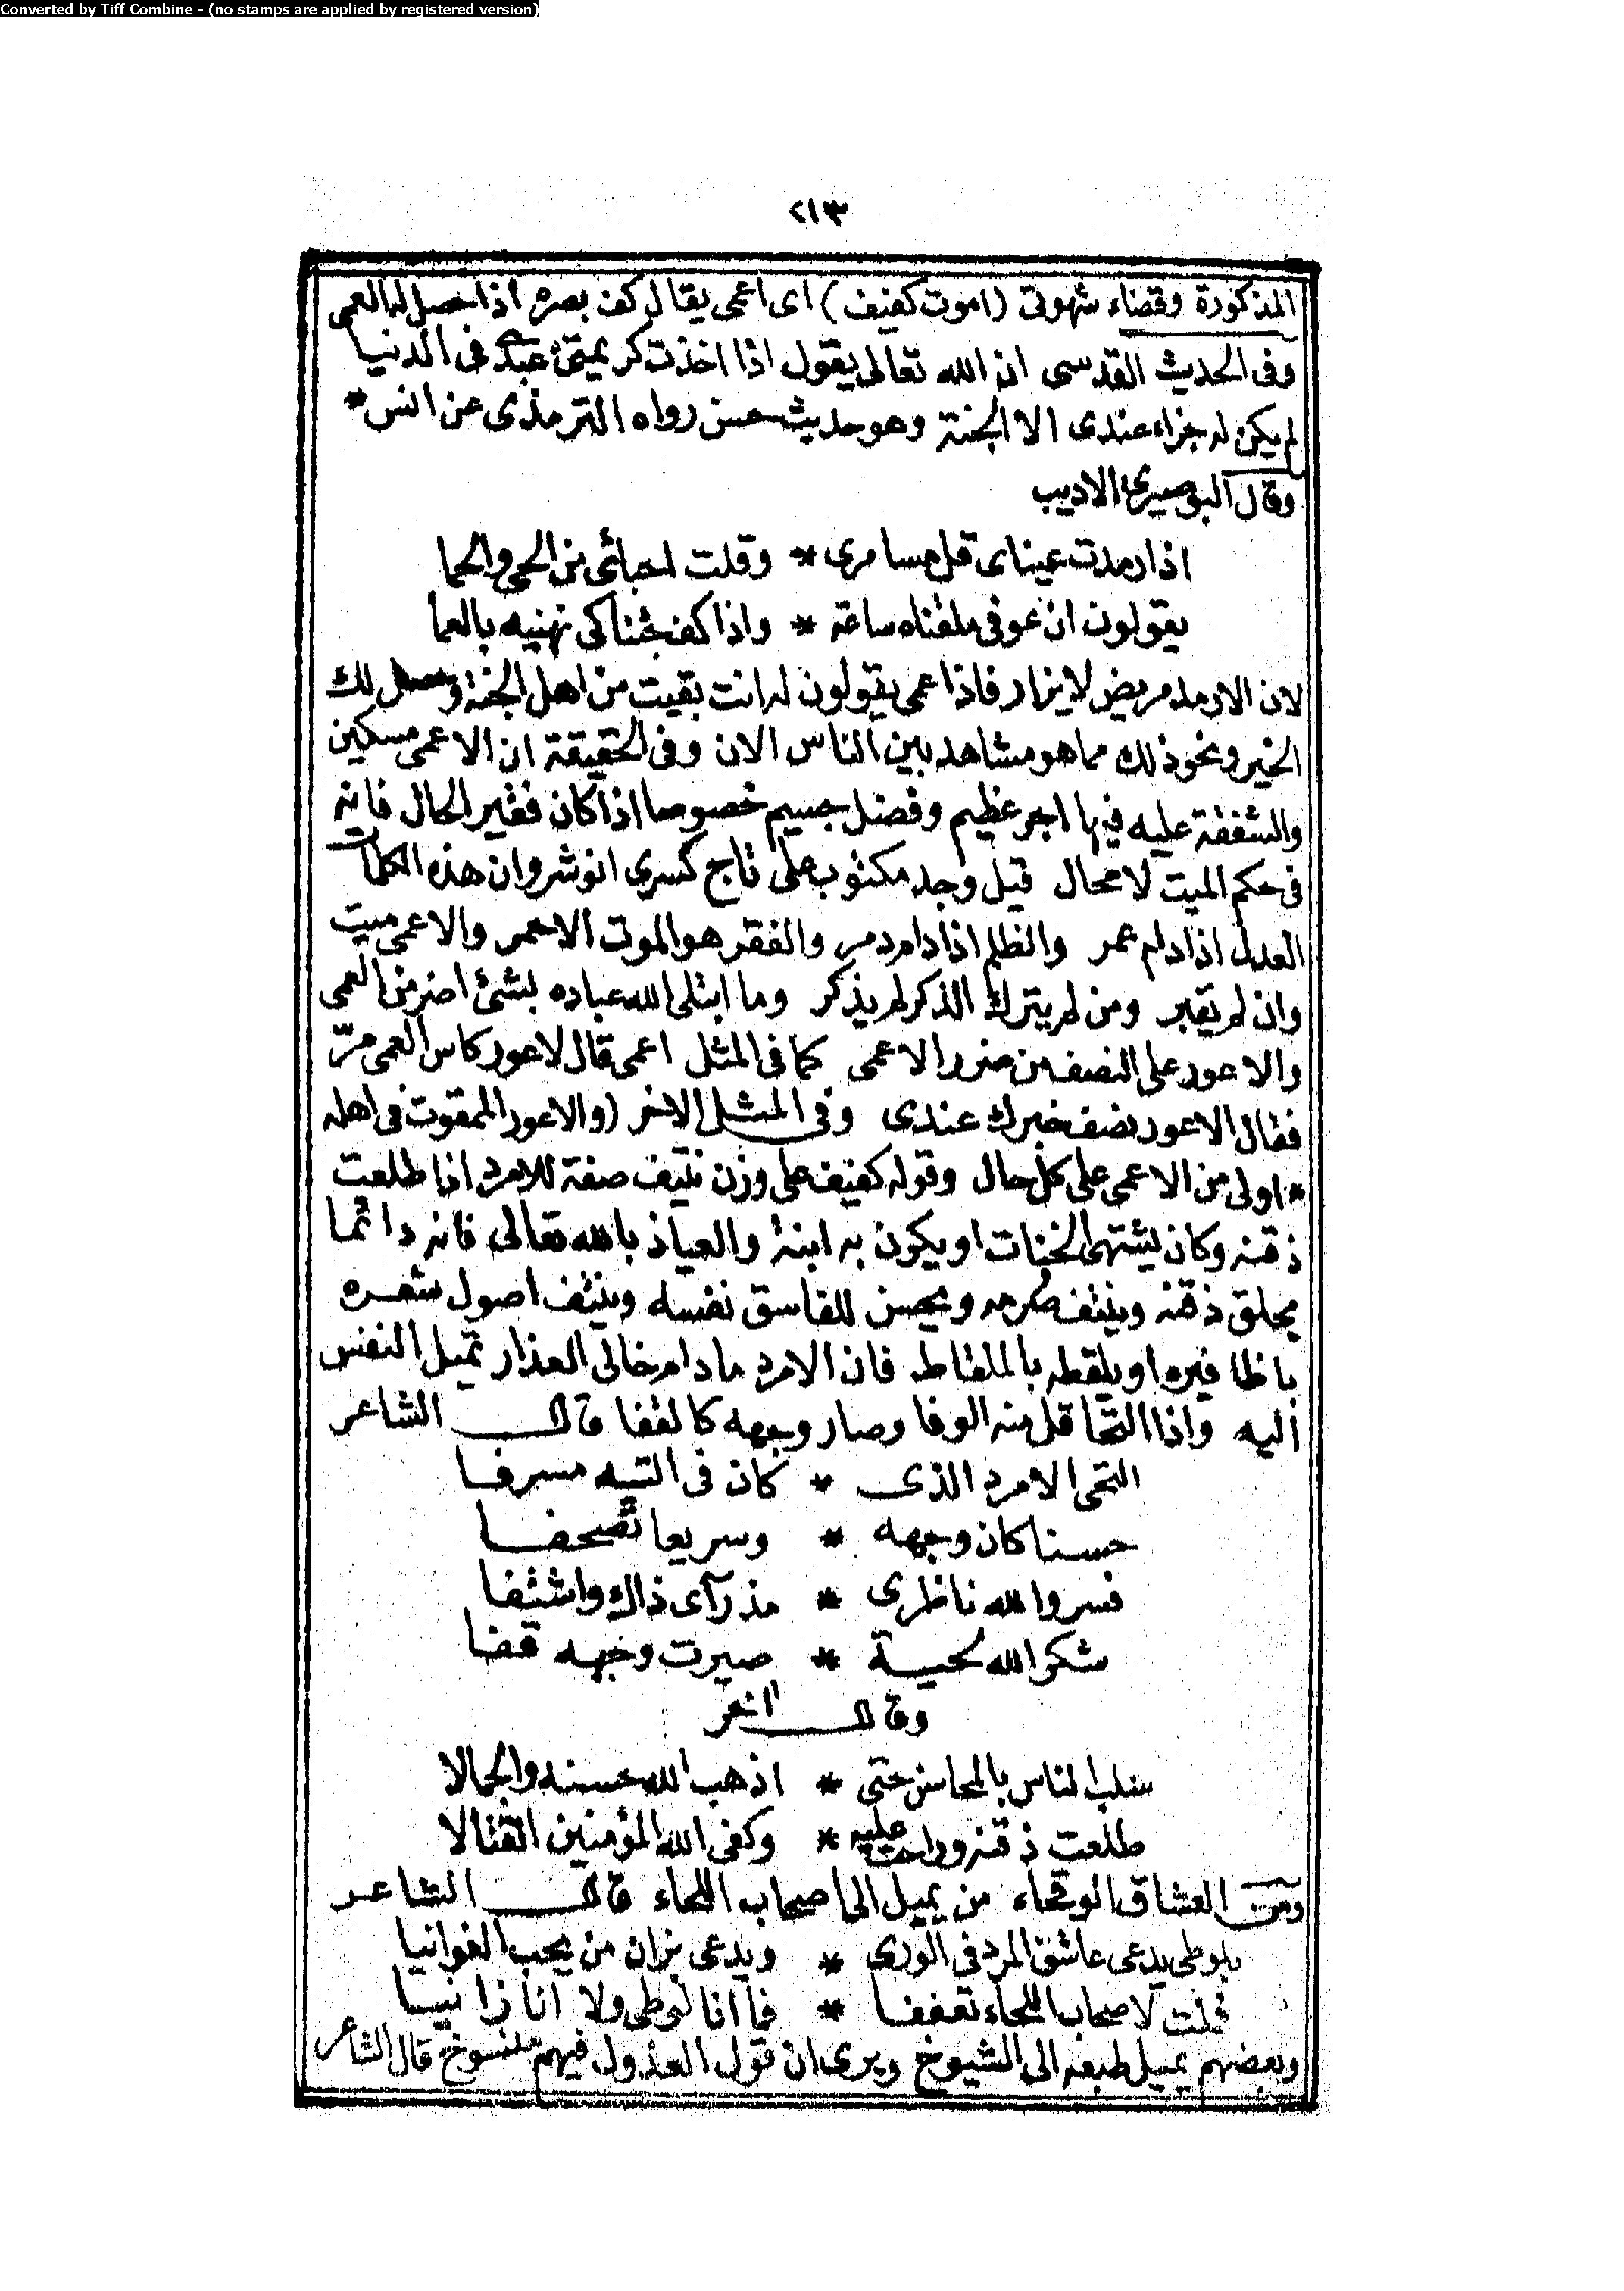 Converted by Tiff Combine - (no stamps are applied by registered version)
٢١٣
المذكورة وقضاء شهوتى (اموت كفيف) اى اعمى يقال كف بصره اذا حصل له العمى
وفى الحديث القدسى ان الله تعالى يقول اذا اخذت كريمتى عبدى فى الدنيا
لم يكن له جزاء عندى الا الجنة وهو حديث حسن رواه الترمذى عن انس *
وقال البوصيرى الاديب
اذا رمدت عيناى قل مسامرى * وقلت احبائى من الحى والحما
يقولون ان عوفى ملقناه ساعة * واذا كف جئنا كى نهنيه بالعما
لان الارمد مريض لا يزار فاذا عمى يقولون له انت بقيت من اهل الجنة وحصل لك
الخير ونحو ذلك مما هو مشاهد بين الناس الان وفى الحقيقة ان الاعمى مسكين
والشفقة عليه فيها اجر عظيم وفضل جسيم خصوصا اذا كان فقير الحال فانه
فى حكم الميت لا محال قيل وجد مكتوب على تاج كسرى انوشروان هذه الكلمات
العدل اذا دام عمر والظلم اذا دام دمر والفقر هو الموت الاحمر والاعمى ميت
وان لم يقبر ومن لم يترك الذكر لم يذكر وما ابتلى الله عباده بشئ اضر من العمى
والاعور على النصف من ضرر الاعمى كما فى المثل اعمى قال لاعور كاس العمى مرّ
فقال الاعور نصف خبرك عندى وفى المثل الاخر (والاعور الممقوت فى اهله
* اولى من الاعمى على كل حال وقوله كفيف على وزن نتيف صفة للامرد اذا طلعت
ذقنه وكان يشتهى الخناث او يكون به ابنة والعياذ بالله تعالى فانه دائما
يحلق ذقنه وينتف خرمه ويحسن للفاسق نفسه وينتف اصول شعره
باظافيره او يلقطه بالملقاط فان الامرد ما دام خالى العذار تميل النفس
اليه واذا التحا قل منه الوفا وصار وجهه كالقفا قال الشاعر
التحى الامرد الذى * كان فى التيه مسرفا
حسنا كان وجهه * وسريعا تصحفا
فسر والله ناظرى * مذ رآى ذاك واشتفا
شكر الله لحية * صيرت وجهه قفا
وقال اخر
سلب الناس بالمحاسن حتى * اذهب الله حسنه والجمالا
طلعت ذقنه وراحت عليه * وكفى الله المؤمنين القتالا
ومن العشاق الوقحاء من يميل الى اصحاب اللحاء قال الشاعر
بلوطى يدعى عاشق المرد فى الورى * ويدعى بزان من يحب الغوانيا
فملت لاصحاب اللحاء تعففا * فما انا لوطى ولا انا زانيا
وبعضهم يميل طبعه الى الشيوخ ويرى ان قول العذول فيهم منسوخ قال الشاعر